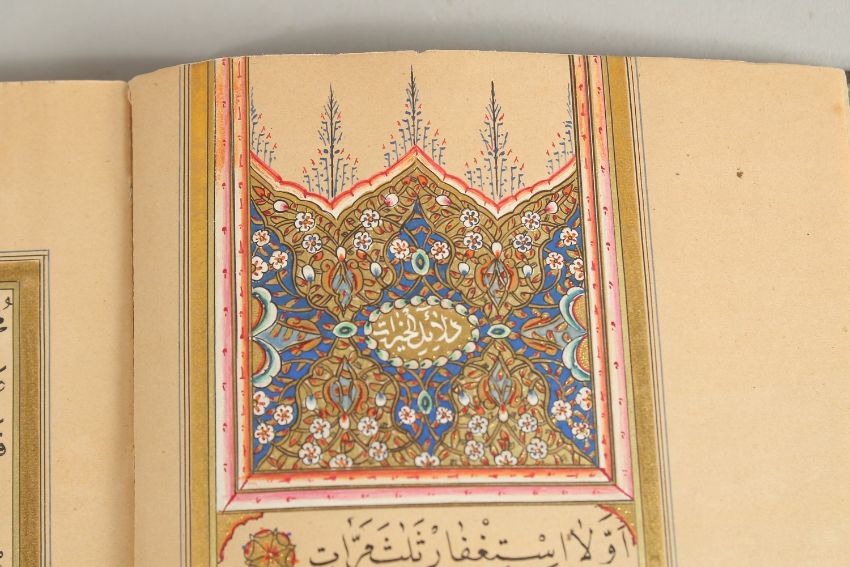 دلائل الخيرات
اَوَّلَا اِسْتِغْفَارْ ثَلٰثَ مَرَّاتٍ